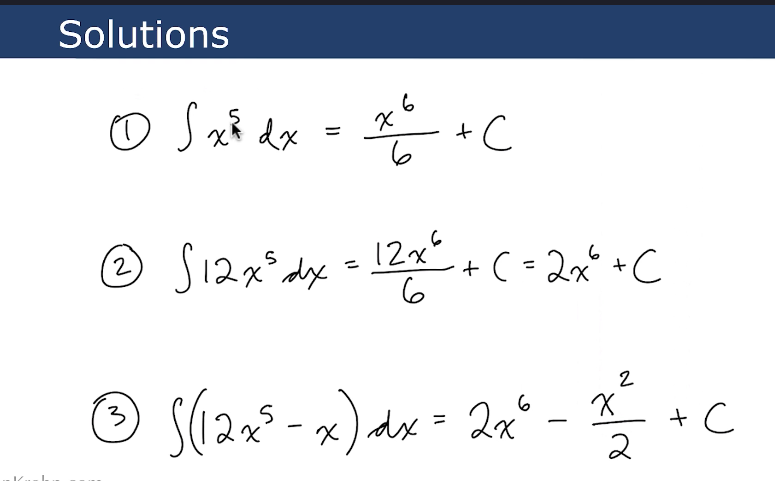 Solutions
① ∫ x⁵ dx = x⁶/6 + C
② ∫ 12x⁵ dx = 12x⁶/6 + C = 2x⁶ + C
③ ∫(12x⁵ - x) dx = 2x⁶ - x²/2 + C